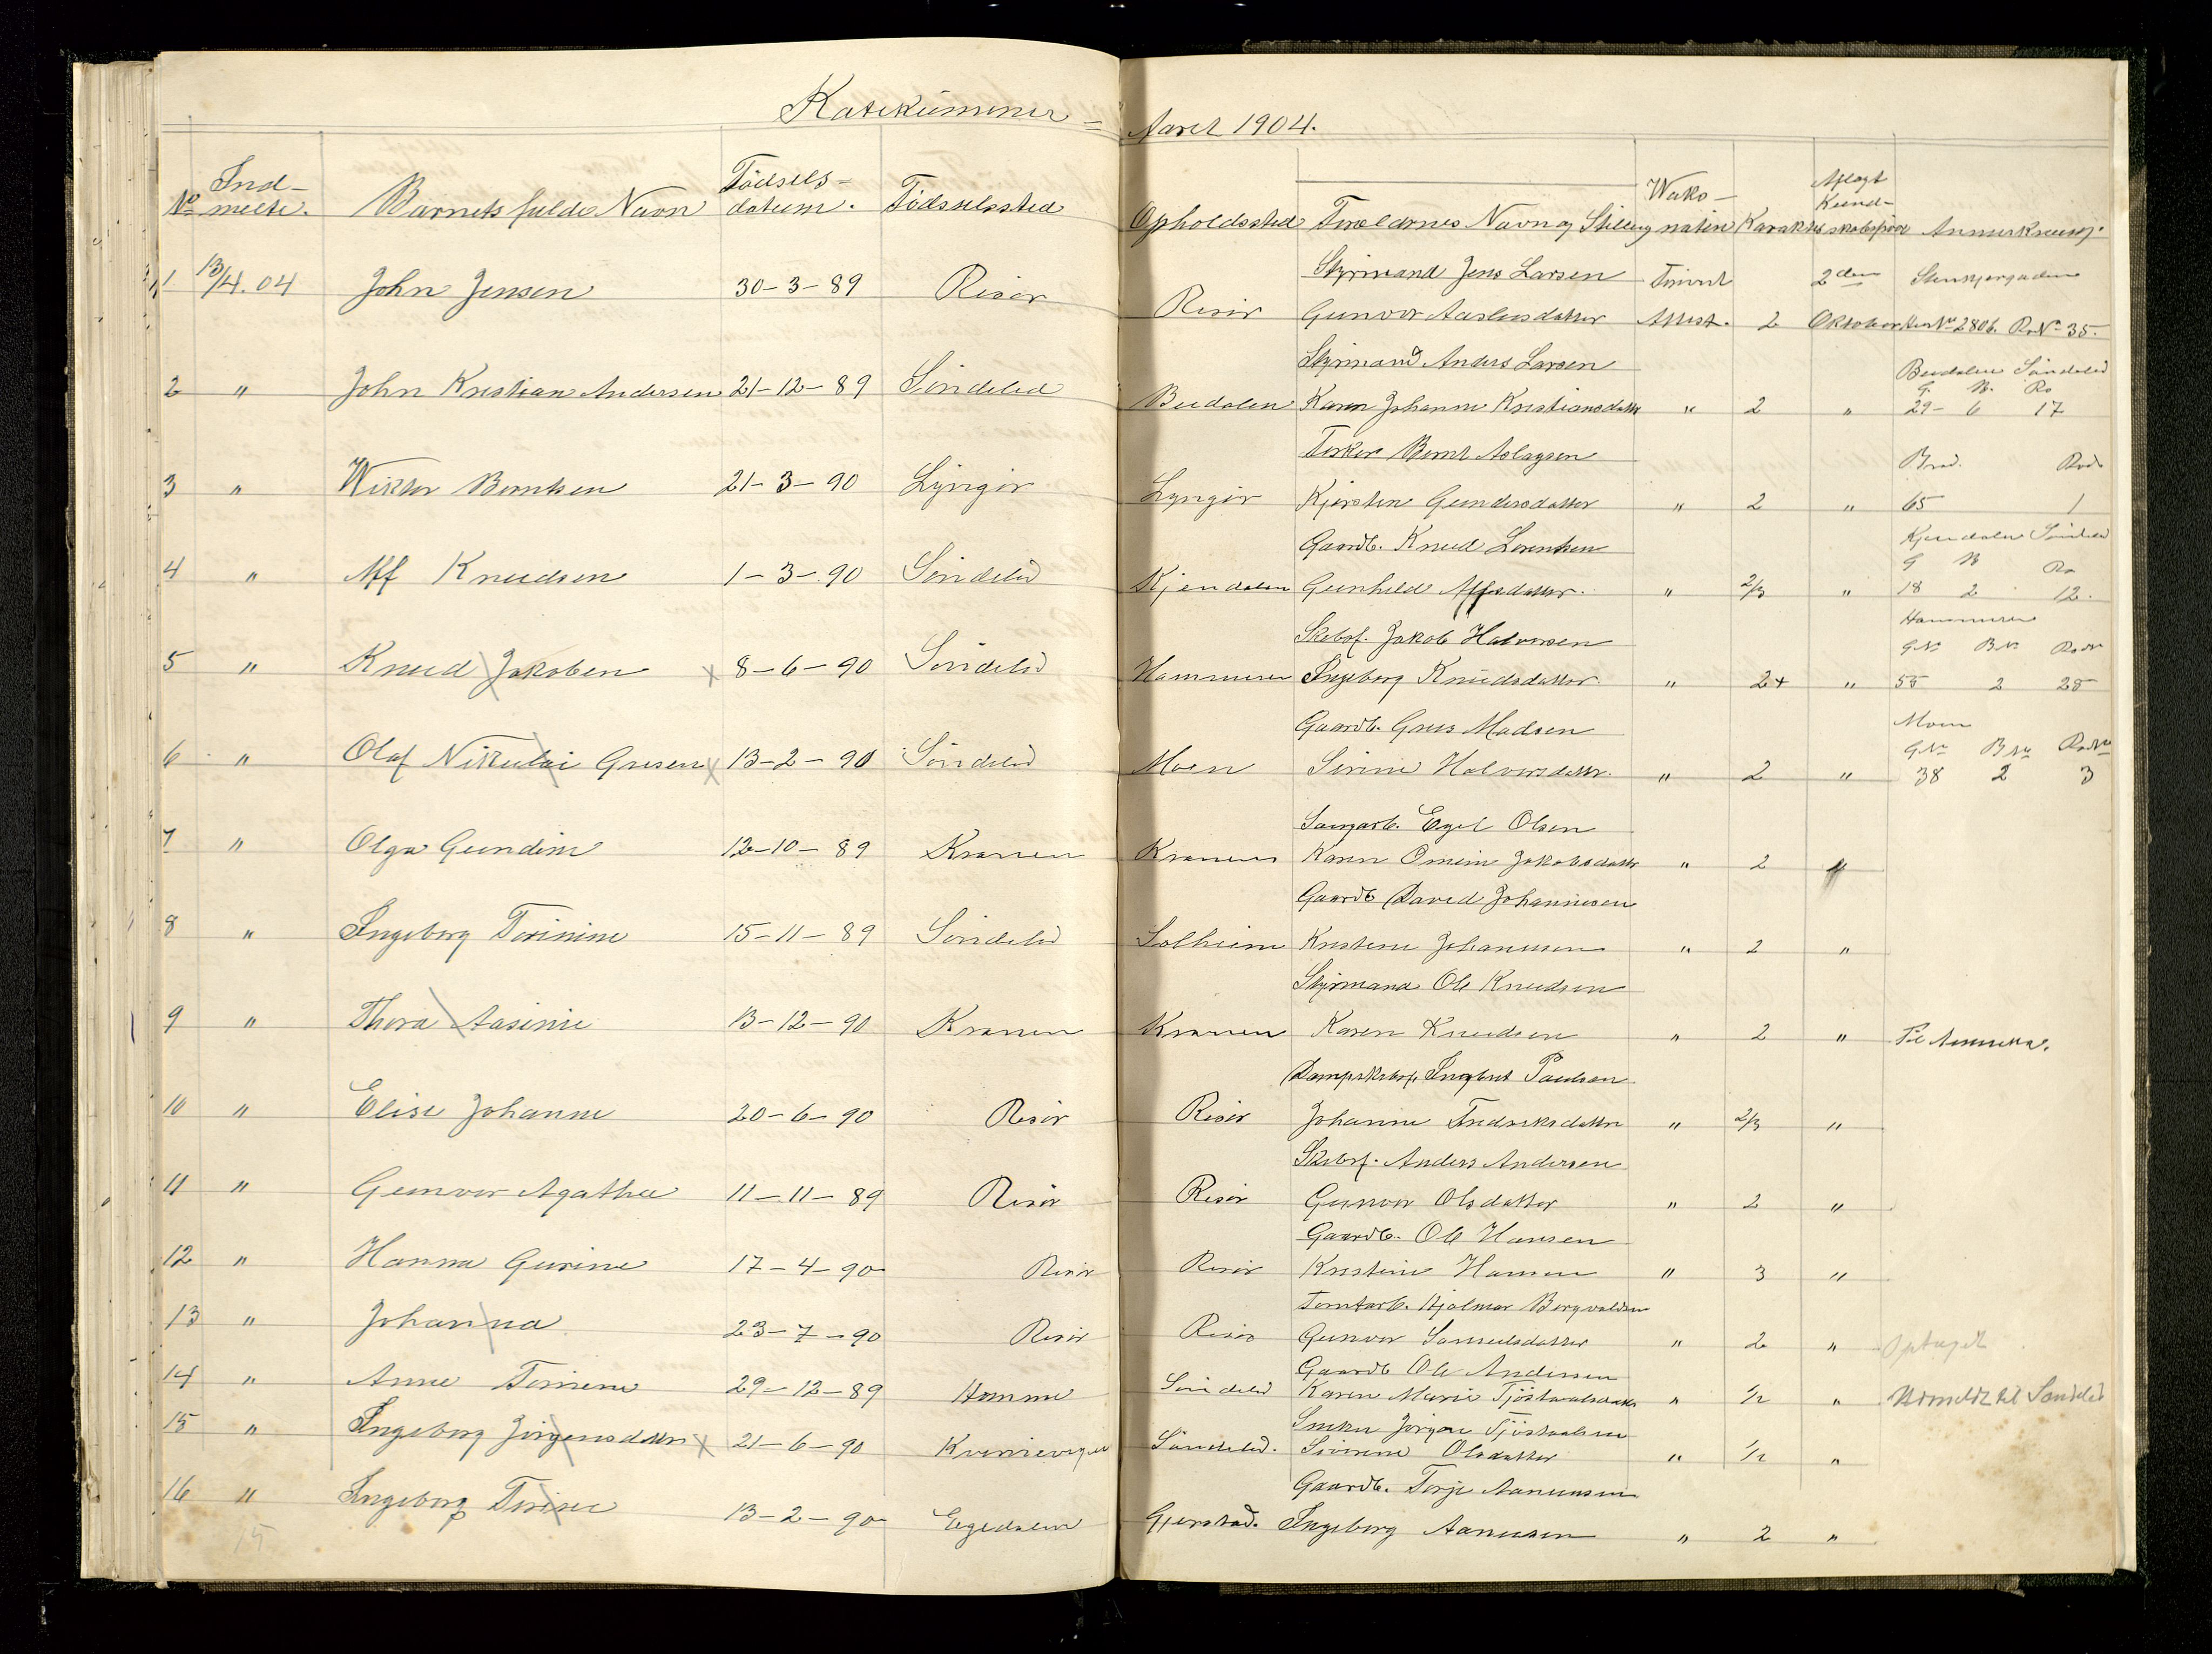 Katekümener = Aaret 1904.
No Ind-melte. Barnets fulde Navn Födsels-datum. Födselssted Opholdssted Forældrenes Navn og Stilling Waks-nation Karakter Aflagt Kund-skabsprøve Anmerkning.
Styrmand Jens Larsen 2den
1 13/4.04 John Jensen 30-3-89 Risør Risør Gunvor Aaslusdatter Attest. 2 Oktober No 2806. Ro No 35.
Styrmand Anders Larsen Söndeled
G. B. Ro
2 " John Kristian Andersen 21-12-89 Söndeled Karen Johanne Kristiansdatter " 2 " 29- 6 17
Fisker Bernt Aslagsen Brad. Rode
3 " Wiktor Berntsen 21-3-90 Lyngör Lyngör Kjersten Gundersdatter " 2 " 65 1
Gaardb. Knud Lorentsen Kjendalen Söndeled
G B Ro
4 " Alf Knudsen 1-3-90 Söndeled Kjendalen Gunhild Alfsdatter. " 2/3 " 18 2 12.
Skibsf. Jakob Halvorsen Hammeren
G.No B.No RoNo
5 " Knud Jakobsen x 8-6-90 Söndeled Hammeren Ingeborg Knudsdatter. " 2+ " 55 2 28
Gaardb. Grees Madsen Moen
G.No B.No RodNo
6 " Olaf Nikulai Gresen x 13-2-90 Söndeled Moen Sirine Halvorsdatter. " 2 " 38 2 3
Egel Olsen
7 " Olga Gundine 12-10-89 Kranen Kranen Karen Jakobsdatter " 2 "
Gaardb David Johannesen
8 " Ingeborg Torinine 15-11-89 Söndeled Solheim Kristine Johannesen " 2 "
Styrmand Ole Knudsen
9 " Thora Aasine 13-12-90 Kranen Kranen Karen Knudsen " 2 " Til Amerika.
Dampskibsf. Ingbret Paulsen
10 " Elise Johanne 20-6-90 Risör Risör Johanne Fredriksdatter " 2/3 "
Skibsf. Anders Andersen
11 " Gunvor Agathe 11-11-89 Risör Risör Gunvor Olsdatter " 2 "
Gaardb. Ole Hansen
12 " Hanna Gurine 17-4-90 Risör Risör Kristine Hansen " 3 "
Tomtarb. Hjalmar Bergvaldsen
13 " Johanna 23-7-90 Risör Risör Gunvor Samuelsdatter " 2 " Optaget
Gaardb Ole Andersen
14 " Anne Tomine 29-12-89 Homme Söndeled Karen Marie Tjöstaalsdatter " 1/2 " Utmeldt til Söndeled
Jörgen Tjöstaalsen
15 " Ingeborg Jörgensdatter x 21-6-90 Söndeled. Olsdatter " 1/2 "
Gaardb. Terje Aanensen
16 " Ingeborg 13-2-90 Egedalen Gjerstad. Ingeborg Aanensen " 2 "
15